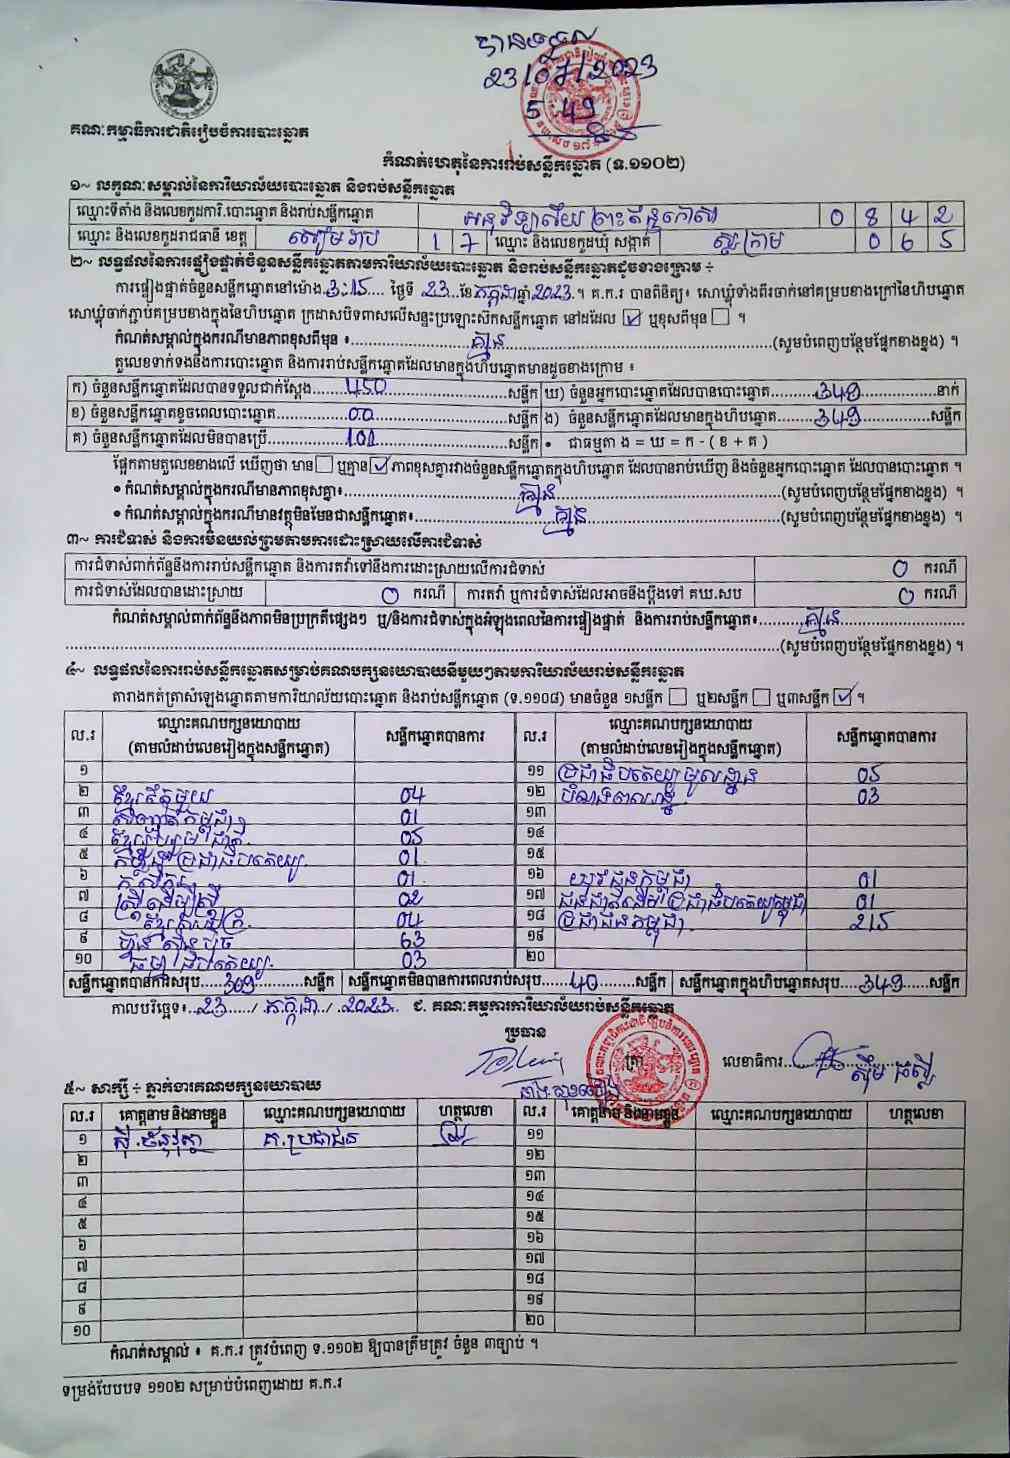 បានទទួល
23/07/2023
5:49
គណៈកម្មាធិការជាតិរៀបចំការបោះឆ្នោត
កំណត់ហេតុនៃការរាប់សន្លឹកឆ្នោត (ទ.១១០២)
១~ លក្ខណៈសម្គាល់នៃការិយាល័យបោះឆ្នោត និងរាប់សន្លឹកឆ្នោត
ឈ្មោះទីតាំង និងលេខកូដការិ.បោះឆ្នោត និងរាប់សន្លឹកឆ្នោត អនុវិទ្យាល័យ 0 8 4 2
ឈ្មោះ និងលេខកូដរាជធានី ខេត្ត សៀមរាប 1 7 ឈ្មោះ និងលេខកូដឃុំ សង្កាត់ ស្លក្រាម 0 6 5
២~ លទ្ធផលនៃការផ្ទៀងផ្ទាត់ចំនួនសន្លឹកឆ្នោតតាមការិយាល័យបោះឆ្នោត និងរាប់សន្លឹកឆ្នោតដូចខាងក្រោម ÷
ការផ្ទៀងផ្ទាត់ចំនួនសន្លឹកឆ្នោតនៅម៉ោង 3:15 ថ្ងៃទី 23 ខែ កក្កដា ឆ្នាំ 2023 ។ គ.ក.រ បានពិនិត្យ៖ សោឃ្លុំទាំងពីរចាក់នៅគម្របខាងក្រៅនៃហិបឆ្នោត
សោឃ្លុំចាក់ភ្ជាប់គម្របខាងក្នុងនៃហិបឆ្នោត ក្រដាសបិទពាសលើសន្ទះប្រឡោះសិកសន្លឹកឆ្នោត នៅដដែល ☑ ឬខុសពីមុន ☐ ។
កំណត់សម្គាល់ក្នុងករណីមានភាពខុសពីមុន ៖ គ្មាន (សូមបំពេញបន្ថែមផ្នែកខាងខ្នង) ។
តួលេខទាក់ទងនឹងការបោះឆ្នោត និងការរាប់សន្លឹកឆ្នោតដែលមានក្នុងហិបឆ្នោតមានដូចខាងក្រោម ៖
ក) ចំនួនសន្លឹកឆ្នោតដែលបានទទួលជាក់ស្តែង 450 សន្លឹក ឃ) ចំនួនអ្នកបោះឆ្នោតដែលបានបោះឆ្នោត 349 នាក់
ខ) ចំនួនសន្លឹកឆ្នោតខូចពេលបោះឆ្នោត 00 សន្លឹក ង) ចំនួនសន្លឹកឆ្នោតដែលមានក្នុងហិបឆ្នោត 349 សន្លឹក
គ) ចំនួនសន្លឹកឆ្នោតដែលមិនបានប្រើ 101 សន្លឹក • ជាធម្មតា ង = ឃ = ក - ( ខ + គ )
ផ្អែកតាមតួលេខខាងលើ ឃើញថា មាន ☐ ឬគ្មាន ☑ ភាពខុសគ្នារវាងចំនួនសន្លឹកឆ្នោតក្នុងហិបឆ្នោត ដែលបានរាប់ឃើញ និងចំនួនអ្នកបោះឆ្នោត ដែលបានបោះឆ្នោត ។
• កំណត់សម្គាល់ក្នុងករណីមានភាពខុសគ្នា៖ គ្មាន (សូមបំពេញបន្ថែមផ្នែកខាងខ្នង) ។
• កំណត់សម្គាល់ក្នុងករណីមានវត្ថុមិនមែនជាសន្លឹកឆ្នោត៖ គ្មាន (សូមបំពេញបន្ថែមផ្នែកខាងខ្នង) ។
៣~ ការជំទាស់ និងការមិនយល់ព្រមតាមការដោះស្រាយលើការជំទាស់
ការជំទាស់ពាក់ព័ន្ធនឹងការរាប់សន្លឹកឆ្នោត និងការតវ៉ាទៅនឹងការដោះស្រាយលើការជំទាស់ 0 ករណី
ការជំទាស់ដែលបានដោះស្រាយ 0 ករណី ការតវ៉ា ឬការជំទាស់ដែលអាចនឹងប្តឹងទៅ គឃ.សប 0 ករណី
កំណត់សម្គាល់ពាក់ព័ន្ធនឹងភាពមិនប្រក្រតីផ្សេងៗ ឬ/និងការជំទាស់ក្នុងអំឡុងពេលនៃការផ្ទៀងផ្ទាត់ និងការរាប់សន្លឹកឆ្នោត៖ គ្មាន
(សូមបំពេញបន្ថែមផ្នែកខាងខ្នង) ។
៤~ លទ្ធផលនៃការរាប់សន្លឹកឆ្នោតសម្រាប់គណបក្សនយោបាយនីមួយៗតាមការិយាល័យរាប់សន្លឹកឆ្នោត
តារាងកត់ត្រាសំឡេងឆ្នោតតាមការិយាល័យបោះឆ្នោត និងរាប់សន្លឹកឆ្នោត (ទ.១១០៨) មានចំនួន ១សន្លឹក ☐ ឬ២សន្លឹក ☐ ឬ៣សន្លឹក ☑ ។
ល.រ ឈ្មោះគណបក្សនយោបាយ (តាមលំដាប់លេខរៀងក្នុងសន្លឹកឆ្នោត) សន្លឹកឆ្នោតបានការ ល.រ ឈ្មោះគណបក្សនយោបាយ (តាមលំដាប់លេខរៀងក្នុងសន្លឹកឆ្នោត) សន្លឹកឆ្នោតបានការ
១ ១១ ប្រជាធិបតេយ្យមូលដ្ឋាន 05
២ ខ្មែរតែមួយ 04 ១២ 03
៣ សញ្ជាតិកម្ពុជា 01 ១៣
៤ ខ្មែររួបរួមជាតិ 05 ១៤
៥ ប្រជាធិបតេយ្យ 01 ១៥
៦ កសិករ 01 ១៦ យុវជនកម្ពុជា 01
៧ ស្ត្រីដើម្បីស្ត្រី 02 ១៧ ជនជាតិដើមប្រជាធិបតេយ្យកម្ពុជា 01
៨ 04 ១៨ ប្រជាជនកម្ពុជា 215
៩ ហ៊្វុនស៊ិនប៉ិច 63 ១៩
១០ ធម្មាធិបតេយ្យ 03 ២០
សន្លឹកឆ្នោតបានការសរុប 309 សន្លឹក សន្លឹកឆ្នោតមិនបានការពេលរាប់សរុប 40 សន្លឹក សន្លឹកឆ្នោតក្នុងហិបឆ្នោតសរុប 349 សន្លឹក
កាលបរិច្ឆេទ៖ 23 / កក្កដា / 2023 ជ. គណៈកម្មការការិយាល័យរាប់សន្លឹកឆ្នោត
ប្រធាន
ត្រា
លេខាធិការ
៥~ សាក្សី ÷ ភ្នាក់ងារគណបក្សនយោបាយ
ល.រ គោត្តនាម និងនាមខ្លួន ឈ្មោះគណបក្សនយោបាយ ហត្ថលេខា ល.រ គោត្តនាម និងនាមខ្លួន ឈ្មោះគណបក្សនយោបាយ ហត្ថលេខា
១ គ.ប្រជាជន ១១
២ ១២
៣ ១៣
៤ ១៤
៥ ១៥
៦ ១៦
៧ ១៧
៨ ១៨
៩ ១៩
១០ ២០
កំណត់សម្គាល់ ៖ គ.ក.រ ត្រូវបំពេញ ទ.១១០២ ឱ្យបានត្រឹមត្រូវ ចំនួន ៣ច្បាប់ ។
ទម្រង់បែបបទ ១១០២ សម្រាប់បំពេញដោយ គ.ក.រ